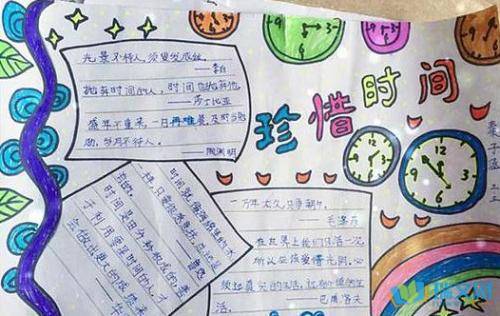 珍惜时间
光景不待人,须臾发成丝。
——李白
抛弃时间的人,时间也抛弃他。
——莎士比亚
盛年不重来,一日再难晨,及时当勉
励,岁月不待人。
——陶渊明
时间就像海绵里的水
只要你愿意挤,总还是
有的。 ——鲁迅
时间是由分秒积成的,善
于利用零星时间的人,才
会做出更大的成绩来
一万年太久,只争朝夕。
——毛泽东
在世界上我们只活一次,
所以应该爱惜光阴,必
须过真实的生活,过有价值的生
活。 ——巴甫洛夫